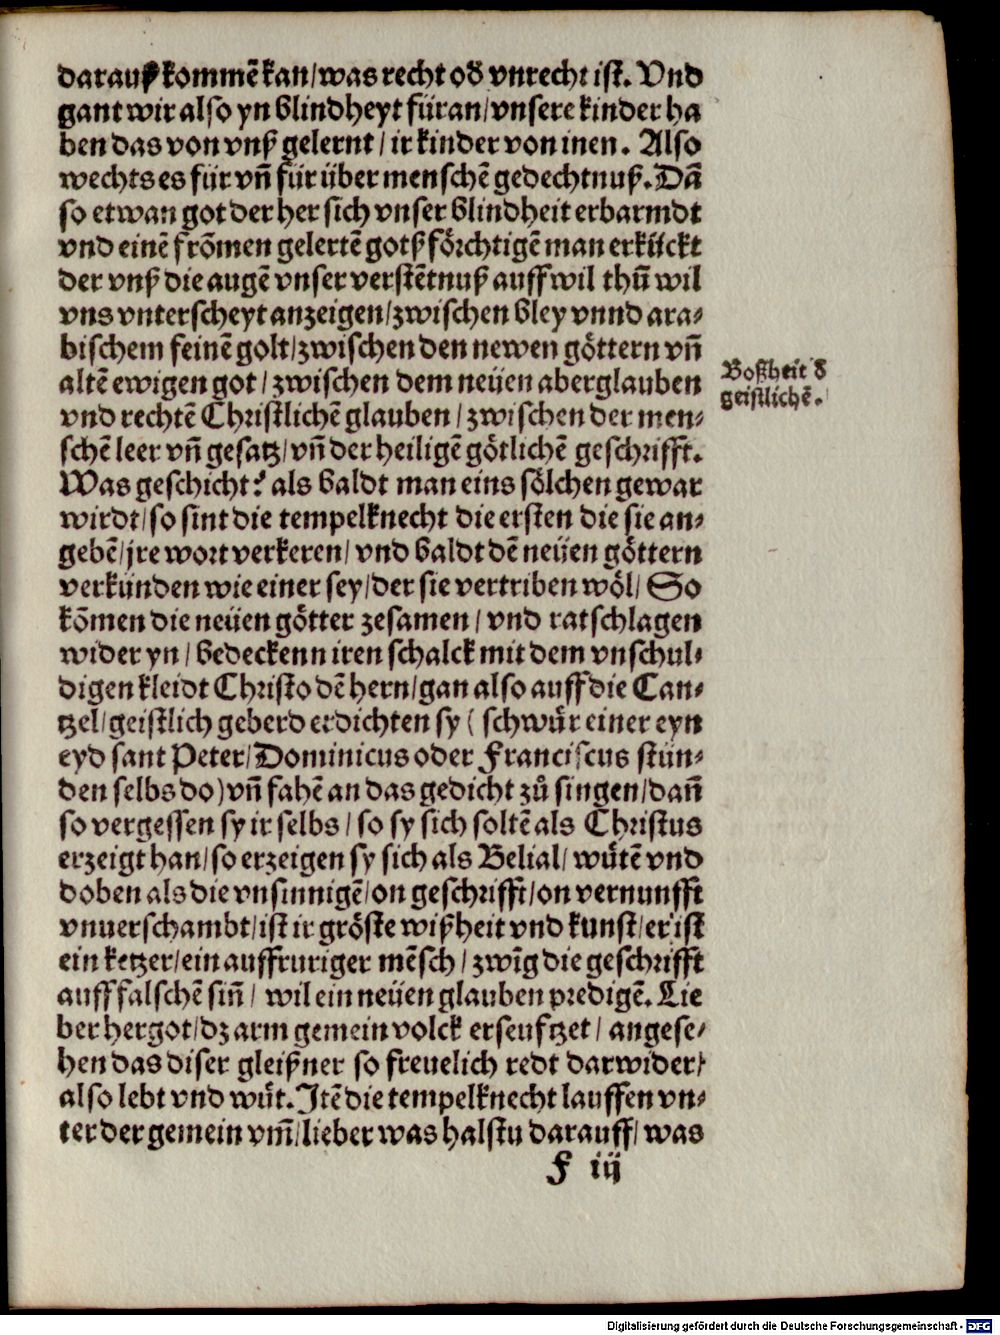 darauß kommē kan/was recht oď vnrecht ist. Vnd
gant wir also yn blindheyt füran/vnsere kinder ha
ben das von vnß gelernt/ir kinder von inen. Also
wechts es für vñ für über menschē gedechtnuß. Dā
so etwan got der her sich vnser blindheit erbarmdt
vnd einē frōmen gelertē gotß förchtigē man erkückt
der vnß die augē vnser verstētnuß auff wil thū wil
vns vnterscheyt anzeigen/zwischen bley vnnd ara⸗
bischem feinē golt/zwischen den newen göttern vñ
altē ewigen got/zwischen dem neüen aberglauben
vnd rechtē Christlichē glauben/zwischen der men⸗
schē leer vñ gesatz/vñ der heiligē götlichē geschrifft.
Was geschicht? als baldt man eins sölchen gewar
wirdt/so sint die tempelknecht die ersten die sie an⸗
gebē/jre wort verkeren/vnd baldt dē neüen göttern
verkünden wie einer sey/der sie vertriben wöl/So
kōmen die neüen götter zesamen/vnd ratschlagen
wider yn/bedeckenn iren schalck mit dem vnschul⸗
digen kleidt Christo dē hern/gan also auff die Can⸗
tzel/geistlich geberd erdichten sy (schwür einer eyn
eyd sant Peter/Dominicus oder Franciscus stün⸗
den selbs do) vñ fahē an das gedicht zů singen/dañ
so vergessen sy ir selbs/so sy sich soltē als Christus
erzeigt han/so erzeigen sy sich als Belial/wütē vnd
doben als die vnsinnigē/on geschrifft/on vernunfft
vnuerschambt/ist ir gröste wißheit vnd kunst/er ist
ein ketzer/ein auffruriger mēsch/zwīg die geschrifft
auff falschē siñ/wil ein neüen glauben predigē. Lie
ber hergot/dz arm gemein volck erseufzet/angese⸗
hen das diser gleißner so freuelich redt darwider/
also lebt vnd wüt. Itē die tempelknecht lauffen vn⸗
ter der gemein vm̄/lieber was halstu darauff/was
F iij
Boßheit ď
geistlichē.
Digitalisierung gefördert durch die Deutsche Forschungsgemeinschaft - DFG